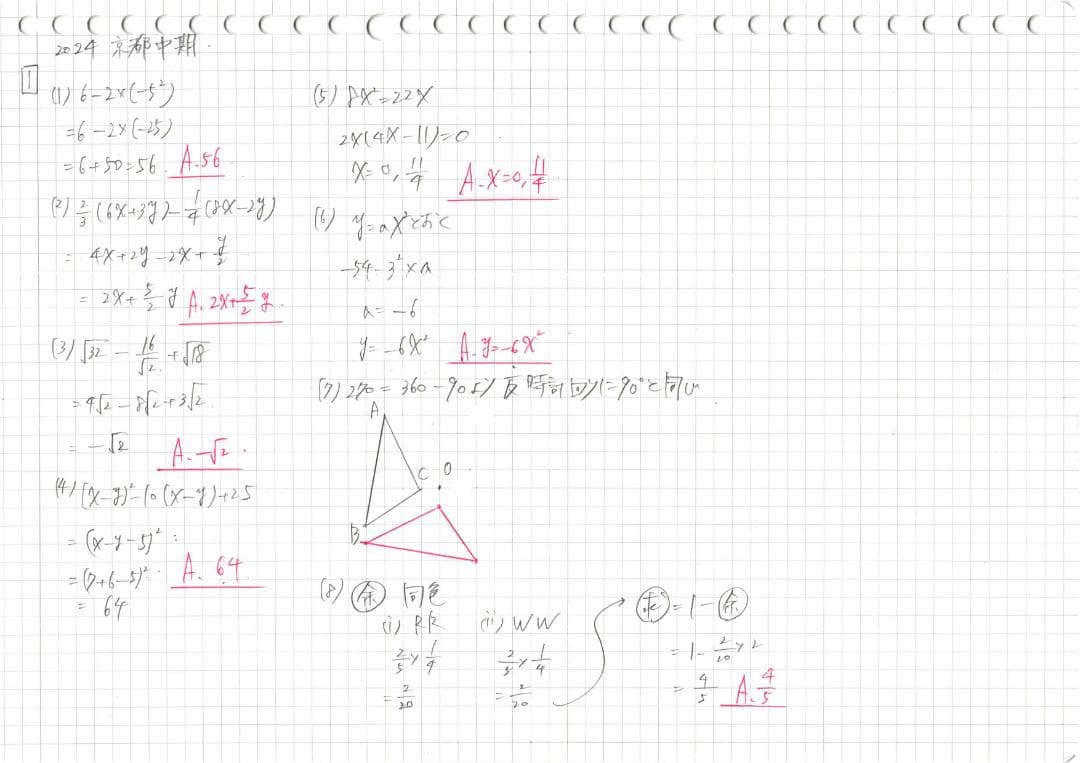 2024 京都中期.
1
(1) 6-2×(-5²)
=6-2×(-25)
=6+50=56. A.56
(2) 2/3(6x+3y)-1/4(8x-2y)
= 4x+2y-2x+y/2
= 2x+5/2y A.2x+5/2y.
(3) √32 - 16/√2 + √18
=4√2-8√2+3√2
= -√2 A.-√2.
(4) (x-y)²-10(x-y)+25
=(x-y-5)²
=(7+6-5)² A.64
= 64
(5) 8x²=22x
2x(4x-11)=0
x=0, 11/4 A.x=0, 11/4
(6) y=ax²とおく
-54=3²×a
a=-6
y=-6x² A.y=-6x²
(7) 270=360-90より反時計回りに90°と同じ
A
C O
B
(8) 余 同色
(i) RR (ii) WW
2/5×1/4 2/5×1/4
=2/20 =2/20
求=1-余
=1-2/20×2
=4/5 A.4/5